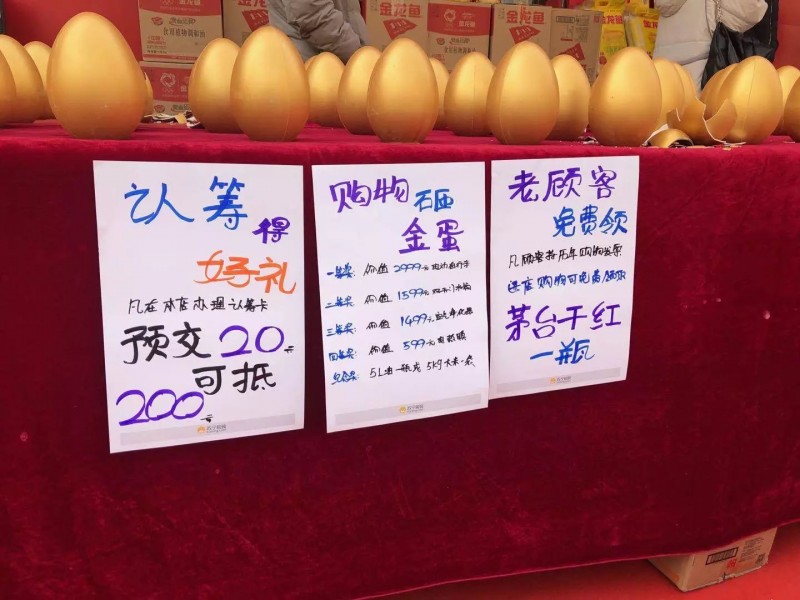 金龙鱼
金龙鱼
金龙鱼
金龙鱼
认筹
得
好礼
凡在本店办理认筹卡
预交20元
可抵
200元
购物砸
金蛋
一等奖: 价值2999元运动自行车
二等奖: 价值1599元
三等奖: 价值1499元
四等奖: 价值599元电蒸锅
5L油一瓶 5kg大米一袋
老顾客
免费领
凡顾客持历年购物发票
进店购物可免费领取
茅台干红
一瓶